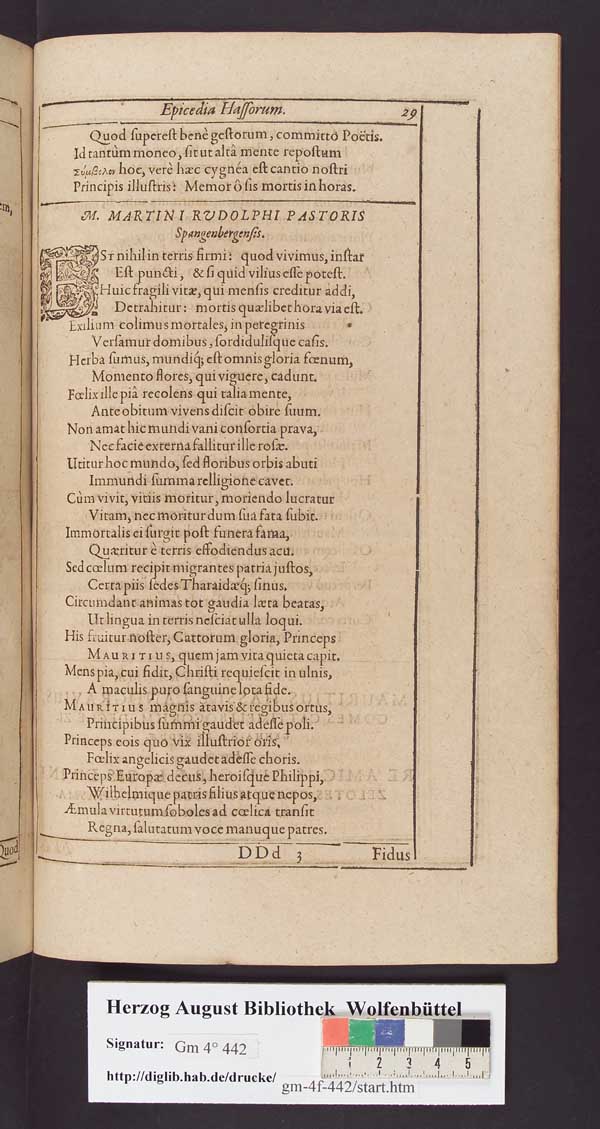 Epicedia Hasſorum. 29
Quod ſupereſt benè geſtorum, committo Poëtis.
Id tantùm moneo, ſit ut altâ mente repoſtum
Σύμβολον hoc, verè hæc cygnéa eſt cantio noſtri
Principis illuſtris: Memor ô ſis mortis in horas.
M. MARTINI RVDOLPHI PASTORIS
Spangenbergenſis.
ESt nihil in terris firmi: quod vivimus, inſtar
Eſt puncti, & ſi quid vilius eſſe poteſt.
Huic fragili vitæ, qui menſis creditur addi,
Detrahitur: mortis quælibet hora via eſt.
Exilium colimus mortales, in peregrinis
Verſamur domibus, ſordiduliſque caſis.
Herba ſumus, mundiq́; eſt omnis gloria fœnum,
Momento flores, qui viguere, cadunt.
Fœlix ille piâ recolens qui talia mente,
Ante obitum vivens diſcit obire ſuum.
Non amat hic mundi vani conſortia prava,
Nec facie externa fallitur ille roſæ.
Utitur hoc mundo, ſed floribus orbis abuti
Immundi ſumma relligione cavet.
Cùm vivit, vitiis moritur, moriendo lucratur
Vitam, nec moritur dum ſua fata ſubit.
Immortalis ei ſurgit poſt funera fama,
Quæritur è terris effodiendus acu.
Sed cœlum recipit migrantes patria juſtos,
Certa piis ſedes Tharaidæq́; ſinus.
Circumdant animas tot gaudia læta beatas,
Ut lingua in terris neſciat ulla loqui.
His fruitur noſter, Cattorum gloria, Princeps
MAURITIUS, quem jam vita quieta capit.
Mens pia, cui fidit, Chriſti requieſcit in ulnis,
A maculis puro ſanguine lota fide.
MAURITIUS magnis atavis & regibus ortus,
Principibus ſummi gaudet adeſſe poli.
Princeps eois quo vix illuſtrior oris,
Fœlix angelicis gaudet adeſſe choris.
Princeps Europæ decus, heroiſque Philippi,
Wilhelmique patris filius atque nepos,
Æmula virtutum ſoboles ad cœlica tranſit
Regna, ſalutatum voce manuque patres.
DDd 3 Fidus
Quod
Herzog August Bibliothek Wolfenbüttel
Signatur: Gm 4° 442
http://diglib.hab.de/drucke/ gm-4f-442/start.htm
1 2 3 4 5